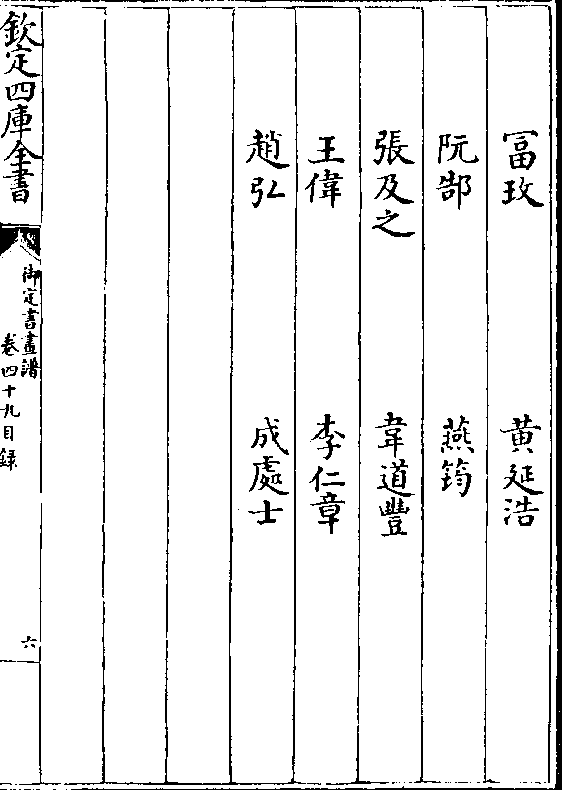 冨玫　黄延浩
阮郜　燕筠
張及之　韋道豐
王偉　李仁章
趙弘　成處士
欽定四庫全書
御定書畫譜
卷四十九目録
六